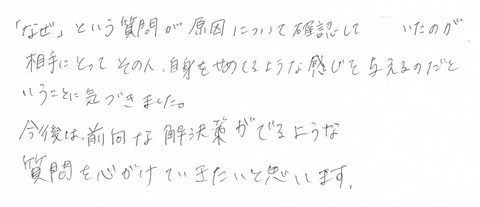 「なぜ」という質問が原因について確認して いたのが
相手にとってその人、自身をせめてるような感じを与えるのだと
いうことに気づきました。
今後は、前向な解決策がでるような
質問を心がけていきたいと思います。